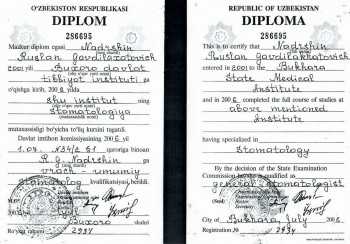 O'ZBEKISTON RESPUBLIKASI
DIPLOM
286695
Mazkur diplom egasi Nadrshin
Ruslan Gavdilazatovich
2001 yili Buxoro davlat
tibbiyot instituti ga
o'qishga kirib, 2006 yilda
shu institut ning
stomatologiya
mutaxassisligi bo'yicha to'liq kursini tugatdi.
Davlat imtihon komissiyasining 2006 yil
1.07. N34/2 61 qaroriga binoan
R.G. Nadrshin ga
vrach-umumiy
stomatolog kvalifikatsiyasi berildi.
Buxoro shahri
Ro'yxatga olindi 2934
REPUBLIC OF UZBEKISTAN
DIPLOMA
286695
This is to certify that Nadrshin
Ruslan Gavdilakhatovich
entered in 2001 to the Bukhara
State Medical
Institute
and in 2006 completed the full course of studies at
above mentioned
Institute
having specialized in
Stomatology
By the decision of the State Examination
Commission he/she is qualified as
general stomatologist
City of Bukhara, July 2006
Registration № 2934